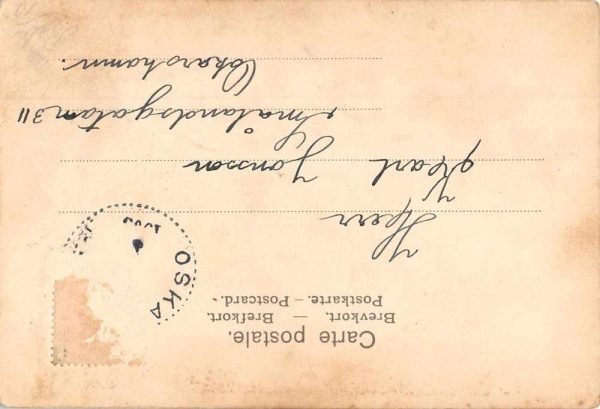 Carte postale.
Brevkort. — Brefkort.
Postkarte. – Postcard.
OSKA
Herr
Karl Jonsson
Smålandsgatan 311
Oskarshamn.